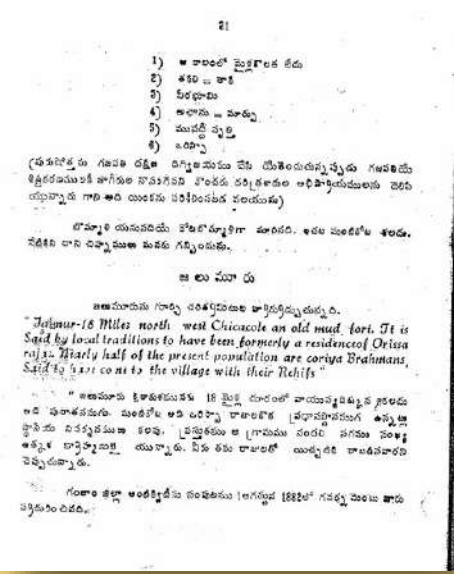 21
1) ఆ కాలంలో మైళ్లకొలత లేదు
2) తకిలి = తాకి
3) వీరభూమి
4) అఛాను = మార్పు
5) మువట్టి వృత్తి
6) ఒరిస్సా
(పురుషోత్తమ గజపతి దక్షిణ దిగ్విజయము చేసి యేతెంచుచున్నప్పుడు గజపతియే
జాగీరుల నొసగెనని కొందరు చరిత్రకారుల అభిప్రాయములను తెలిపి
యున్నారు గాని అది యింకను పరిశీలింపబడ వలయును)
బొమ్మాళి యనునదియే కోటబొమ్మాళిగా మారినది. అచట మంటికోట కలదు.
నేటికిని దాని చిహ్నములు మనకు గన్పించును.
జలుమూరు
జలుమూరును గూర్చి
" Jalmur-18 Miles north west Chicacole an old mud fort. It is
Said by local traditions to have been formerly a residence of Orissa
rajas. Niarly half of the present population are coriya Brahmans,
Said to have come to the village with their Rehifs "
" జలుమూరు శ్రీకాకుళమునకు 18 మైళ్ల దూరంలో వాయువ్యదిక్కున కలదు
అది పురాతనమగు మంటికోట అది ఒరిస్సా రాజులకొక ఉన్నట్లు
స్థానీయ కలవు. ప్రస్తుతము ఆ గ్రామము నందలి సగము సంఖ్య
ఉత్కళ బ్రాహ్మణులై యున్నారు. వీరు తమ రాజులతో యిచ్చటికి రాబడినవారని
చెప్పుచున్నారు.
గంజాం జిల్లా సంపుటము (ఆగస్టువ 1882లో గవర్న మెంటు వారు